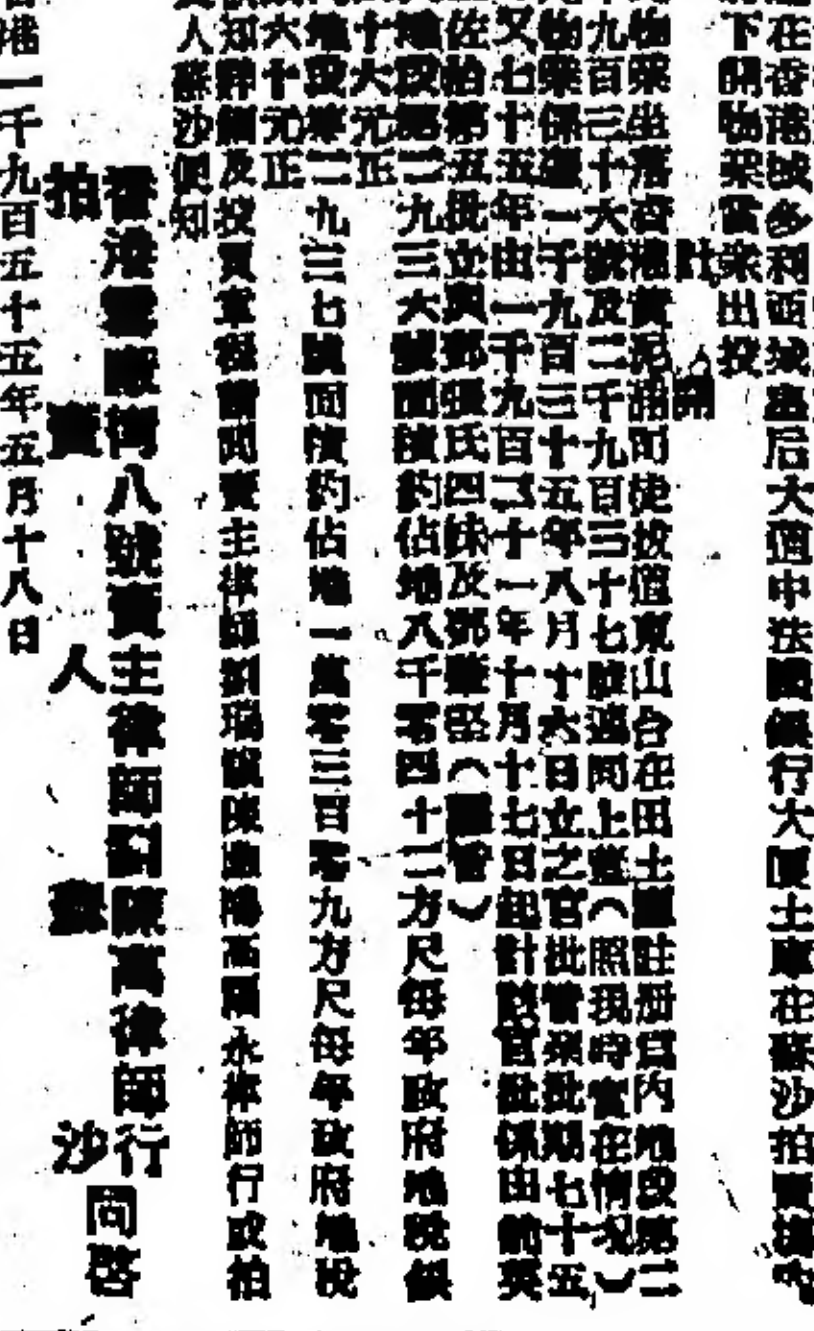 在香港域多利西城皇后大道中法國銀行大厦土庫在蘇沙拍賣塲內
下開物業當衆出投
計開
物業坐落香港黃泥涌司徒拔道東山台在田土廳註册官內地段第二
千九百三十六號及二千九百三十七號連同上蓋（照現時實在情况）
物業係遵一千九百三十五年八月十六日立之官批管業批期七十五
又七十五年由一千九百二十一年十月十七日起計該官批係由前英
佐治第五批立與鄧張氏四妹及鄧肇堅（圖書）
地段第二九三六號面積約佔地八千零四十二方尺每年政府地稅銀
十六元正
地段第二九三七號面積約佔地一萬零三百零九方尺每年政府地稅
六十元正
知詳細及投買章程請問賣主律師劉瑞 陳 高 永律師行或拍
人蘇沙便知
香港雪廠街八號賣主律師劉陳高律師行
拍賣人蘇沙
同啓
香港一千九百五十五年五月十八日